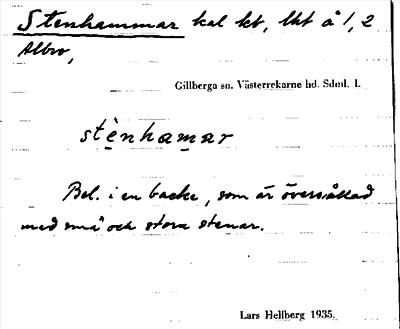 Stenhammar kal kt, lht å 1, 2
Albro,
Gillberga sn. Västerrekarne hd. Sdml. l.
stènhamar
Bel. i en backe, som är översållad
med små och stora stenar.
Lars Hellberg 1935.